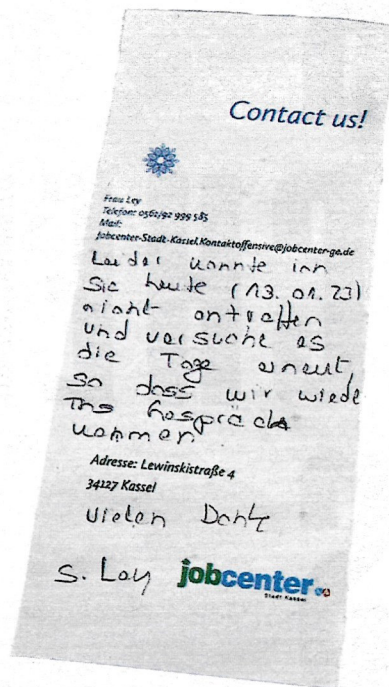 Contact us!
Frau Ley
Telefon: 0561/92 999 585
Mail:
Jobcenter-Stadt-Kassel.Kontaktoffensive@jobcenter-ge.de
Leider konnte ich
Sie heute (13.01.23)
nicht antreffen
und versuche es
die Tage erneut,
so dass wir wieder
ins Gespräch
kommen.
Adresse: Lewinskistraße 4
34127 Kassel
Vielen Dank
S. Ley
jobcenter
Stadt Kassel